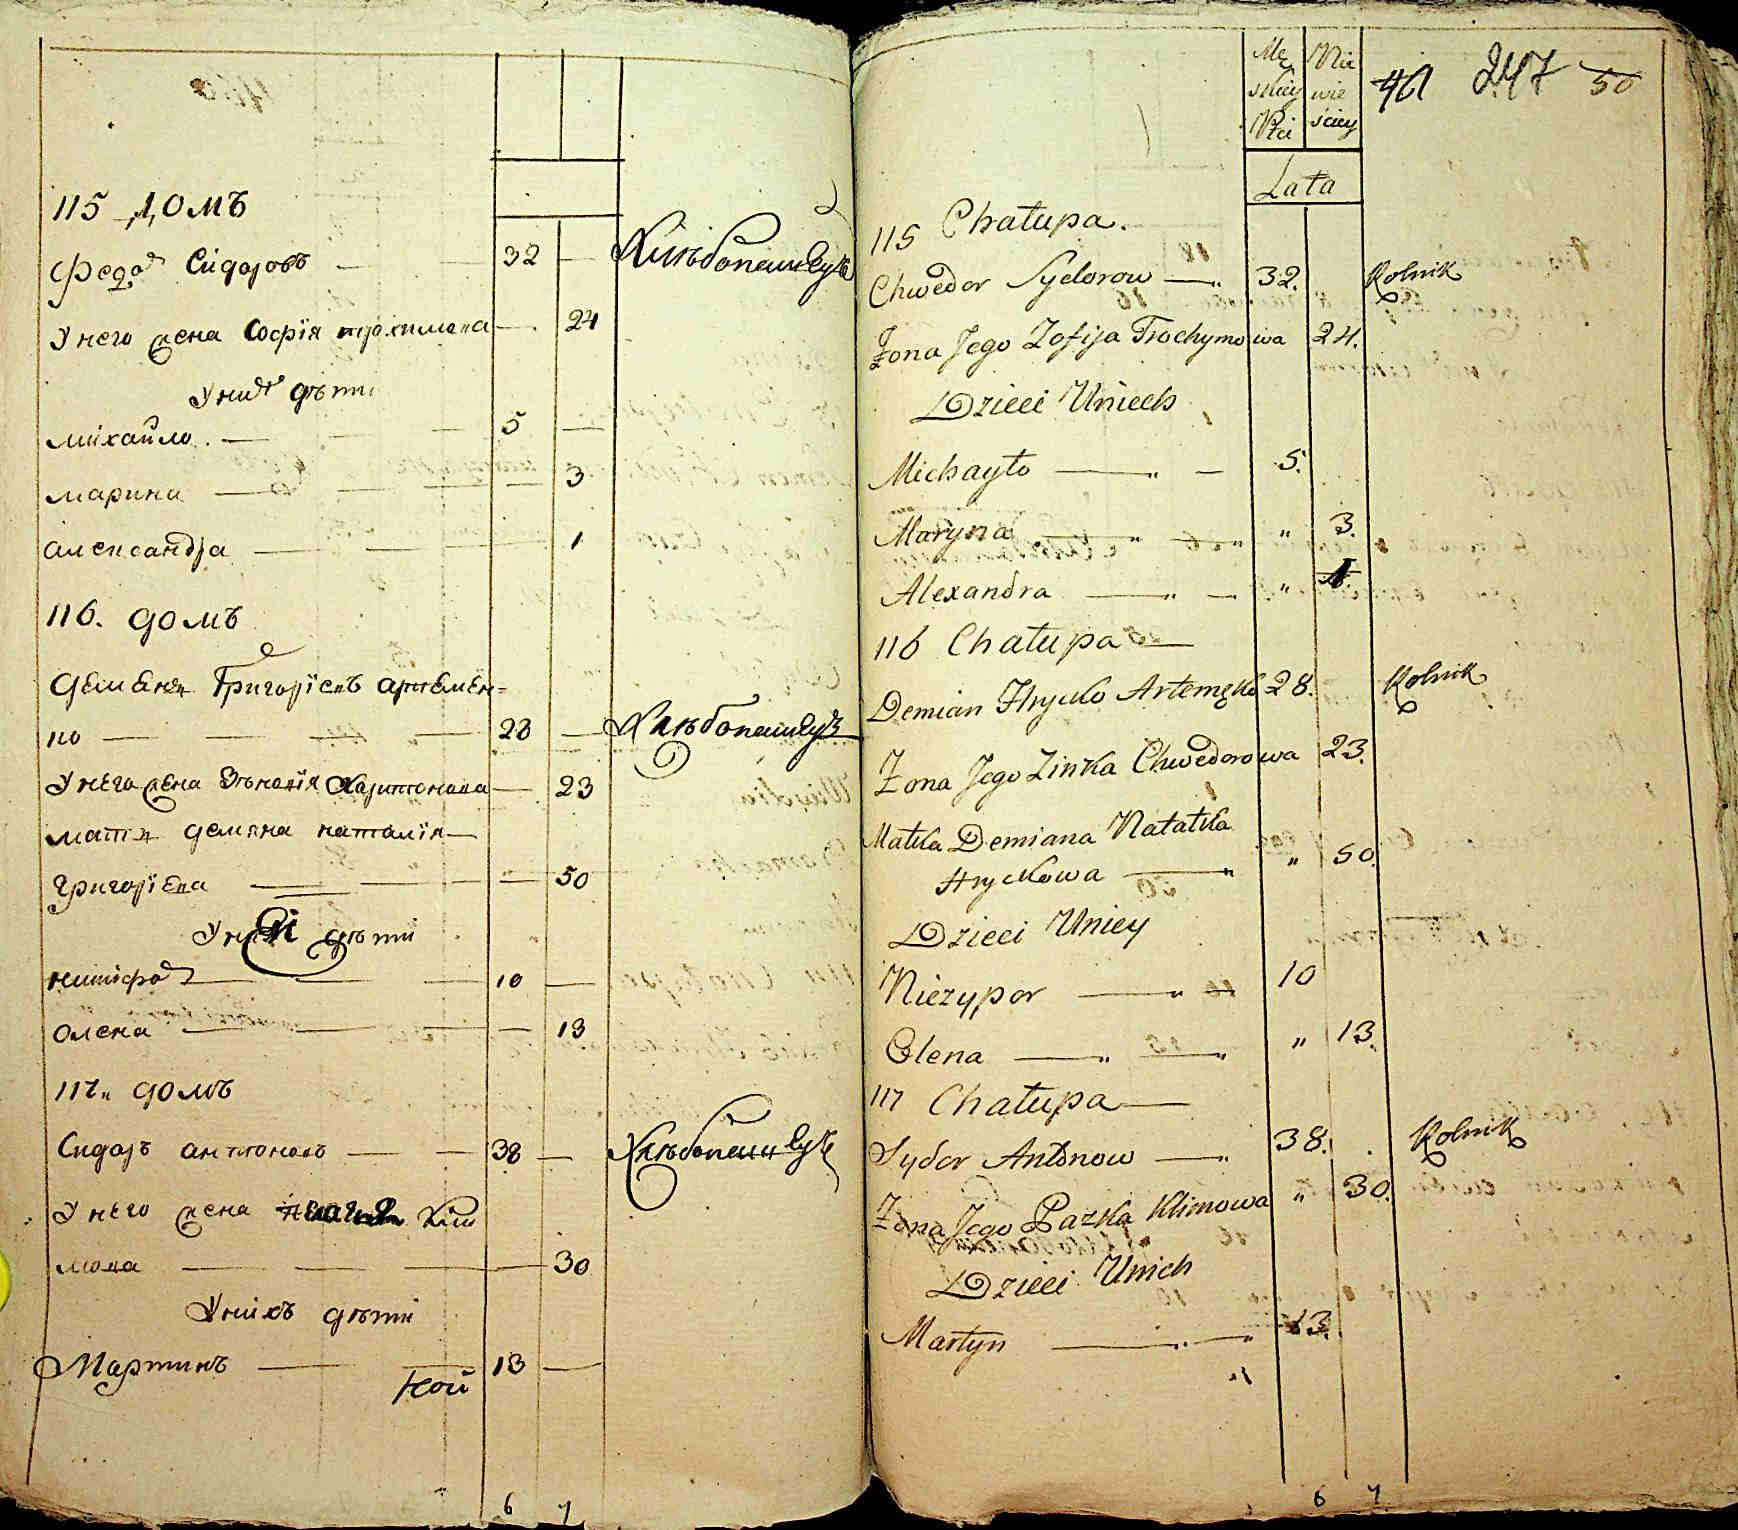 115 домъ
Федоръ Сидоровъ — — 32 — Хлѣбопашецъ
У него жена Софія трохимова — 24
У нихъ дѣти
михайло — — — 5 —
марина — — — — 3
александра — — — 1
116. домъ
Демянъ Григоріевъ артемен=
ко — — — — 28 — Хлѣбопашецъ
У него жена Зѣновія Харитонова — 23
мати демяна наталія —
григоріева — — — — 50
У неи дѣти
ничифоръ — — — 10 —
олена — — — — 13
117 домъ
Сидоръ антоновъ — — 38 — Хлѣбопашецъ
У него жена Клі
мова — — — — 30
У нихъ дѣти
Мартинъ — — 13 —
кой
6 7
Mę Nie
skiey wie
Płci ściey
41 247 50
Lata
115 Chałupa.
Chwedor Sydorow — 32. Rolnik
Żona Jego Zofija Trochymowa 24.
Dzieci Uniech
Michayło — — 5.
Maryna — — " 3.
Alexandra — — " 1
116 Chałupa —
Demian Hrycko Artemęko 28. Rolnik
Żona Jego Zinka Chwedorowa 23.
Matka Demiana Natałka
Hryckowa — " 50.
Dzieci Uniey
Niezypor — — 10
Olena — — " 13.
117 Chałupa —
Sydor Antonow — 38. Rolnik
Żona Jego Pazka Klimowa " 30.
Dzieci Unich
Martyn — — 13.
6 7